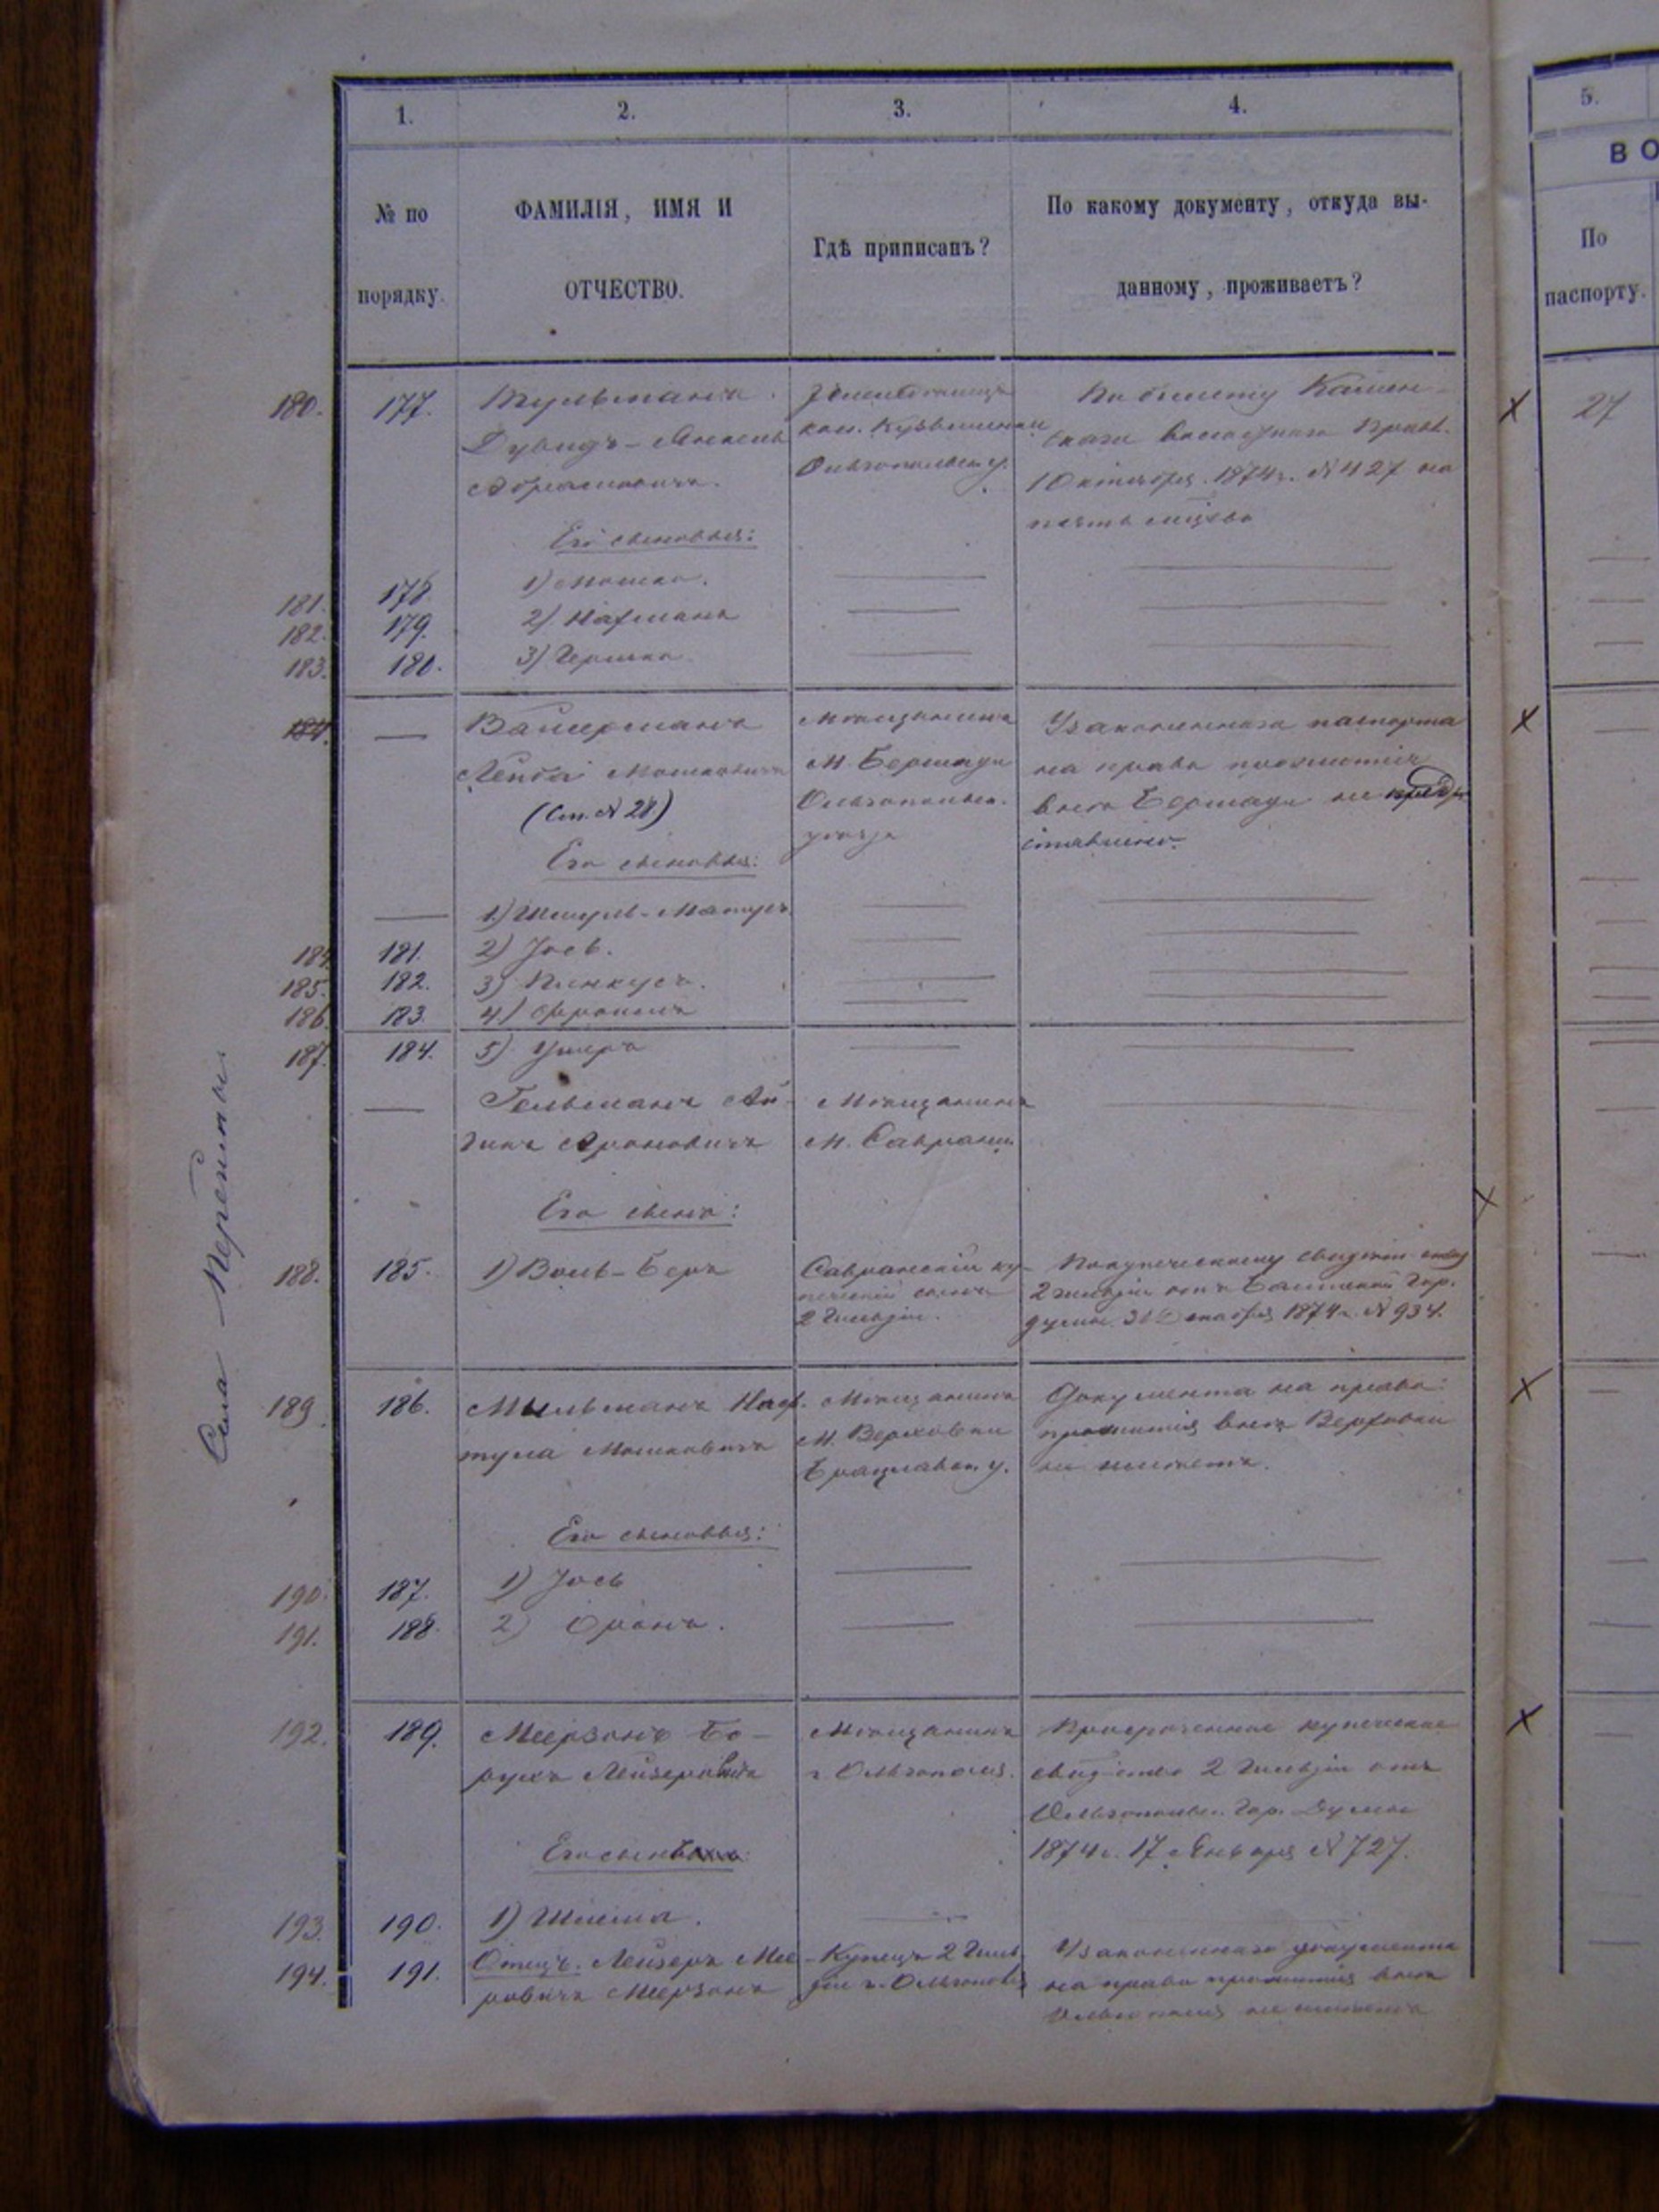 1.
2.
3.
4.
5.
№ по
порядку.
ФАМИЛІЯ, ИМЯ И
ОТЧЕСТВО.
Гдѣ приписанъ?
По какому документу, откуда вы-
даннοму, проживаетъ?
ВО
По
паспорту.
180.
177.
Дувидъ-
Абрамовичъ.
Земледѣлецъ
кол.
Ольгопольск. у.
По билету Камен-
скаго волостнаго Правл.
1 Октября. 1874 г. № 427 на
27
Его сыновья:
181.
178.
1) Мошко.
182.
179.
2) Нахманъ
183.
180.
3) Гершко
184.
Вайсерманъ
Лейба Мошковичъ
(Ст. № 28)
Мѣщанинъ
М. Бершади
Ольгопольск.
уѣзда
Узаконеннаго паспорта
на право
внѣ Бершади не пред-
ставлено.
Его сыновья:
1) Шмуль-
184.
181.
2) Іось.
185.
182.
3) Пинкусъ.
186.
183.
4) Фроимъ
187.
184.
5) Ушеръ
Гельманъ
Ароновичъ
Мѣщанинъ
М. Саврани
Его сынъ:
188.
185.
1) Воль-Беръ
Савранскій ку-
печескій сынъ
2 Гильдіи.
По купеческому
2 гильдіи отъ Балтской Гор.
думы 31 Декабря 1874 г. № 934.
Села Перейты
189.
186.
Мильманъ Наф-
тула Мошковичъ
Мѣщанинъ
М. Верховки
Брацлавск. у.
Документа на право
прожитія внѣ Верховки
не имѣетъ.
Его сыновья:
190.
187.
1) Іось
191.
188.
2)
192.
189.
Меерзонъ Бо-
рухъ Лейзеровичъ
Мѣщанинъ
г. Ольгополя.
Просроченное купеческое
2 Гильдіи отъ
Ольгопольск. Гор. Думы
1874 г. 17 Января № 727.
193.
190.
1) Шлема.
194.
191.
Отецъ. Лейзеръ Мее-
ровичъ Меерзонъ
Купецъ 2 Гиль-
діи г. Ольгополя
Узаконеннаго документа
на право прожитія внѣ
Ольгополя не имѣетъ